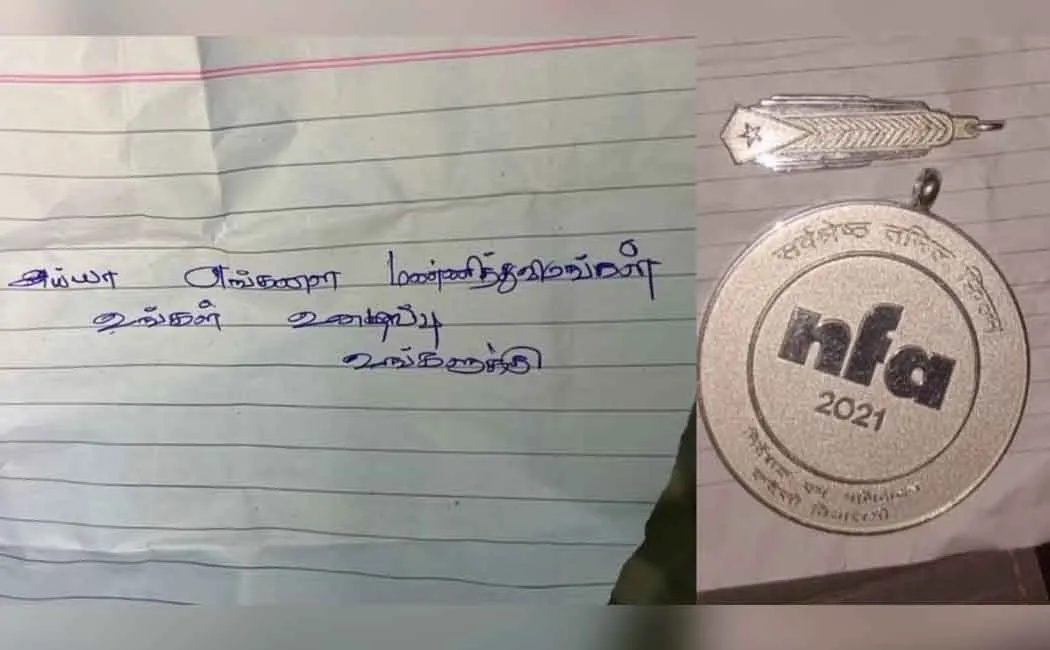 அய்யா எங்களை மண்ணித்துவிடுங்கள்
உங்கள் உழைப்பு
உங்களுக்கு
सर्वश्रेष्ठ तमिल फिल्म
nfa
2021
निर्देशक एवं